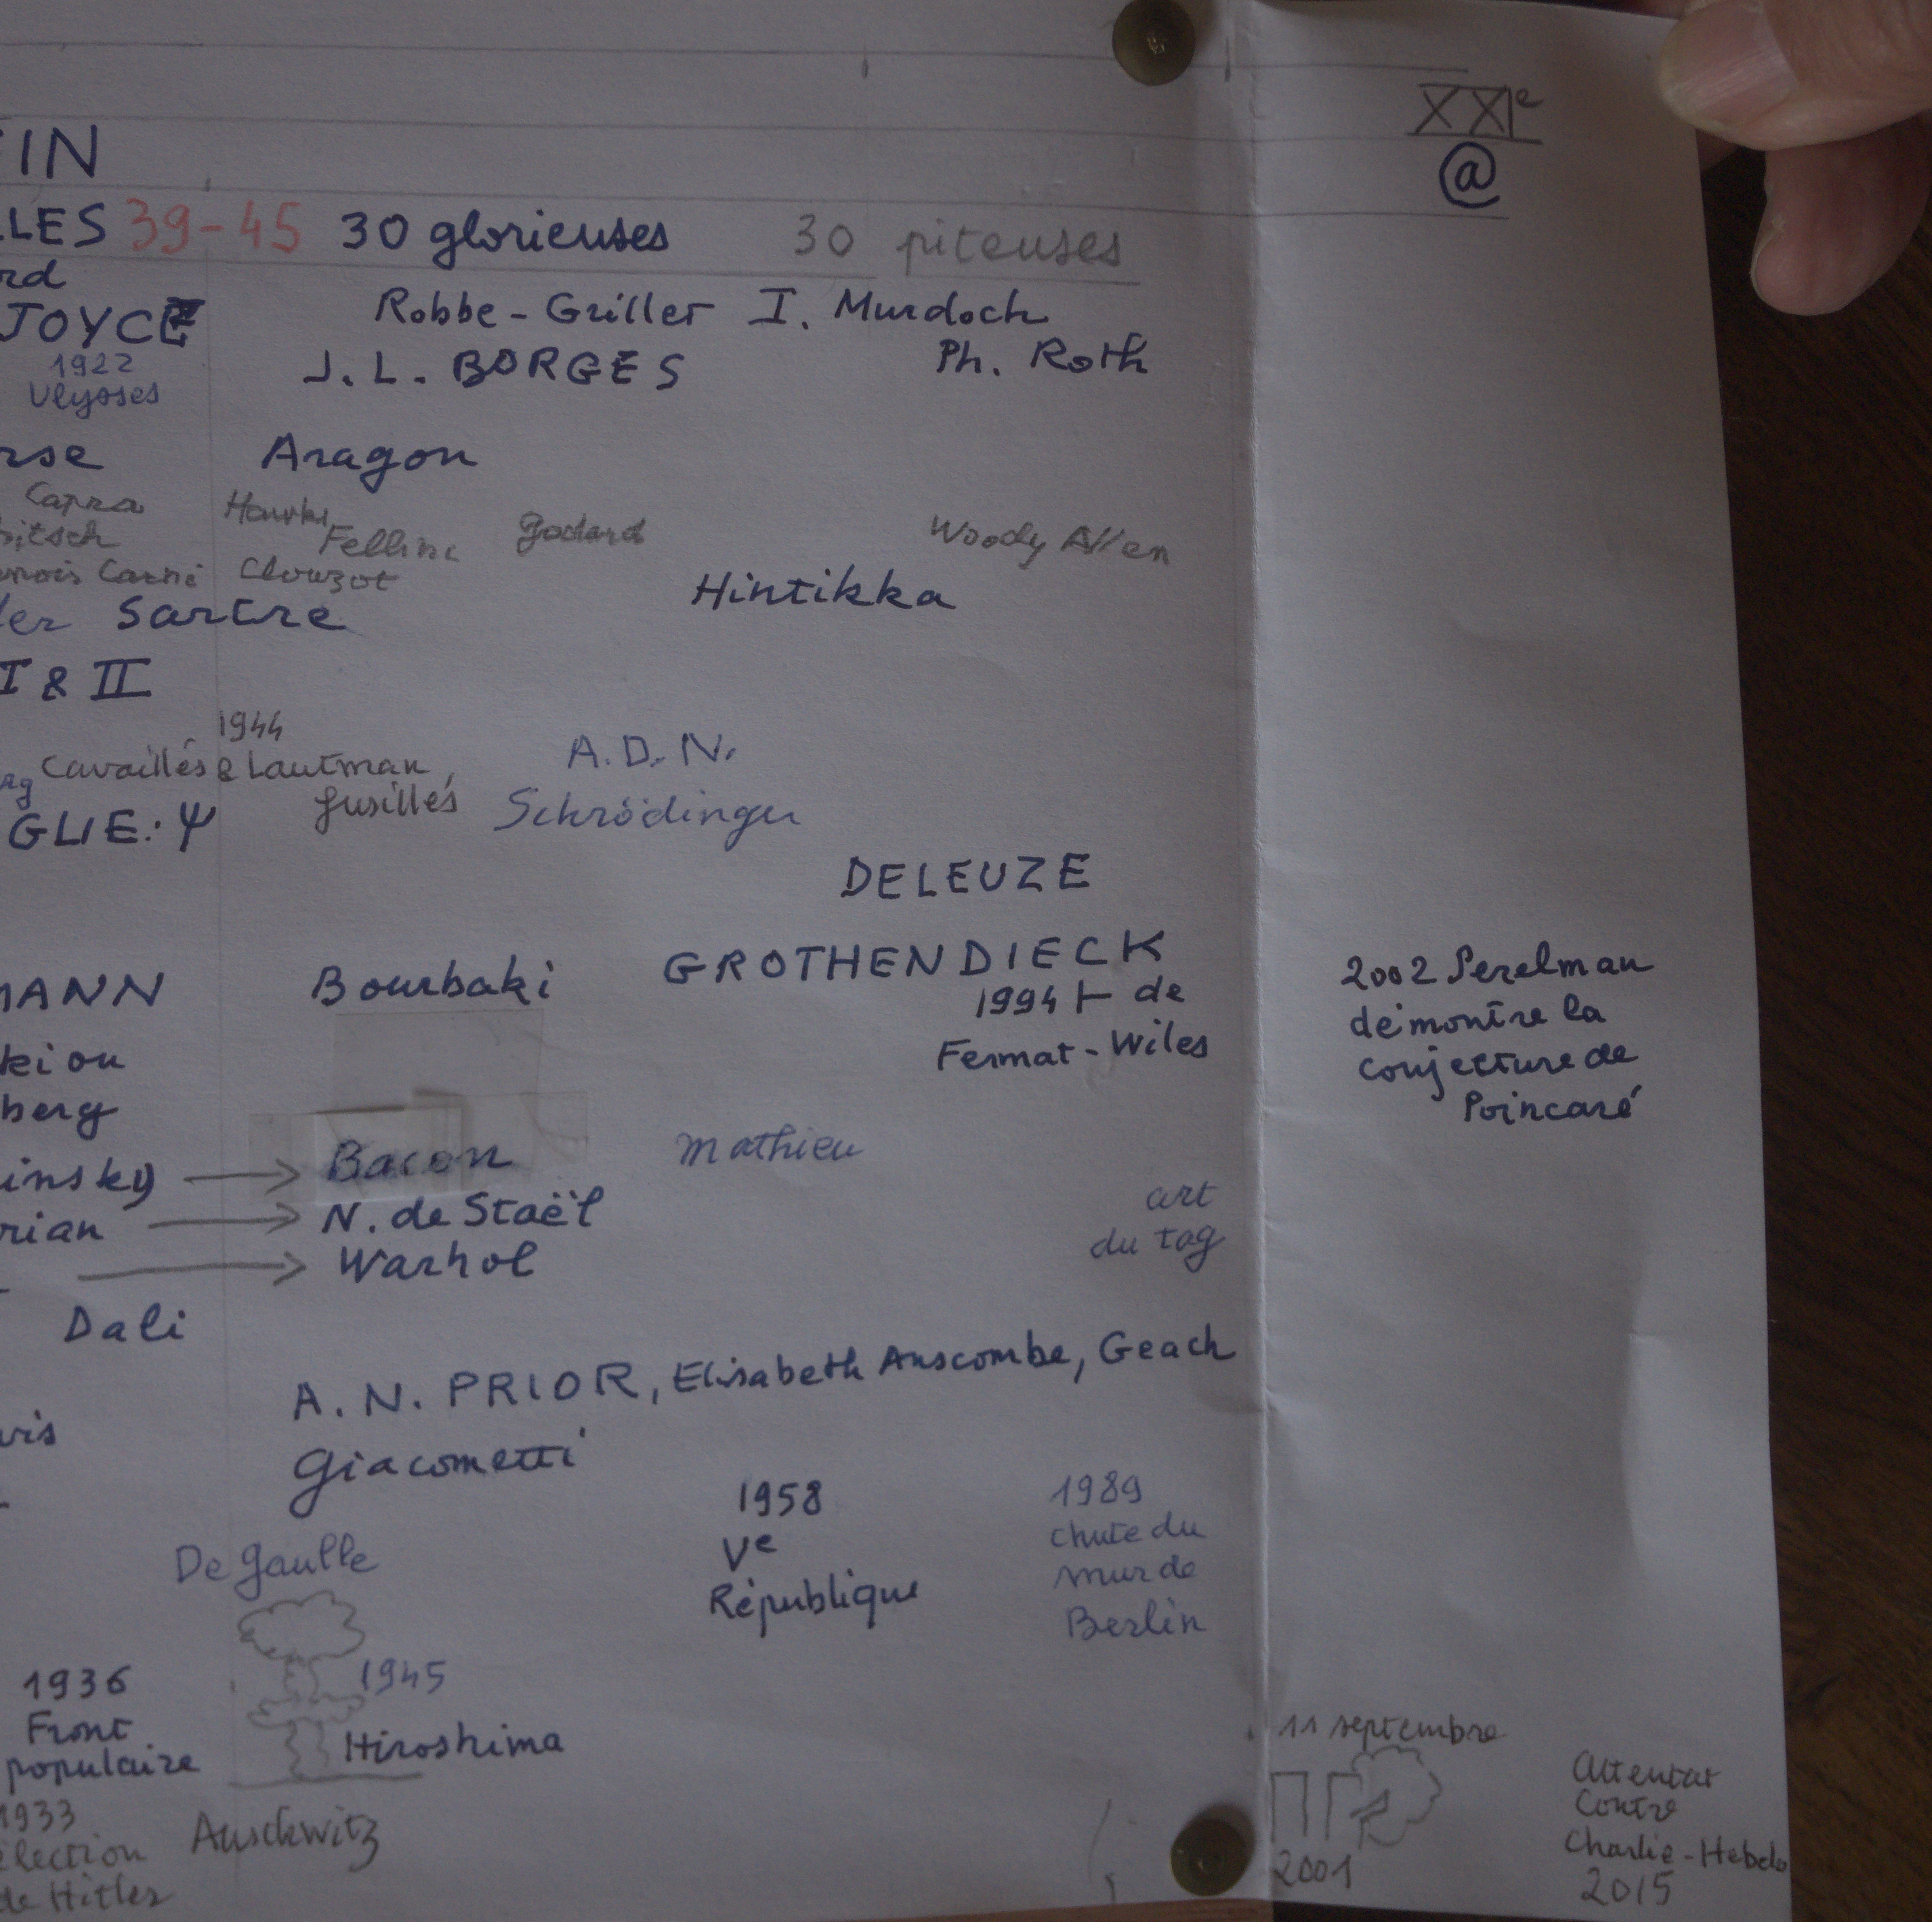 XXIe
@
IN
LLES 39-45 30 glorieuses 30 piteuses
rd
JOYCE Robbe-Griller I. Murdoch
1922 J. L. BORGES Ph. Roth
Ulysses
rse Aragon
Capra Hawks
bitsch Fellini Godard Woody Allen
Carné Clouzot
Hintikka
er Sartre
I & II
1944
Cavaillés & Lautman, A.D.N.
fusillés Schrödinger
GLIE: Ψ
DELEUZE
MANN Bourbaki GROTHENDIECK 2002 Perelman
1994 ⊢ de démontre la
ki ou Fermat-Wiles conjecture de
berg Poincaré
insky → Bacon Mathieu
rian → N. de Staël art
→ Warhol du tag
Dali
A. N. PRIOR, Elisabeth Anscombe, Geach
vis
Giacometti
1958 1989
De Gaulle Ve chute du
République mur de
Berlin
1936 1945
Front Hiroshima 11 septembre
populaire Attentat
1933 Auschwitz contre
élection Charlie-Hebdo
de Hitler 2001 2015